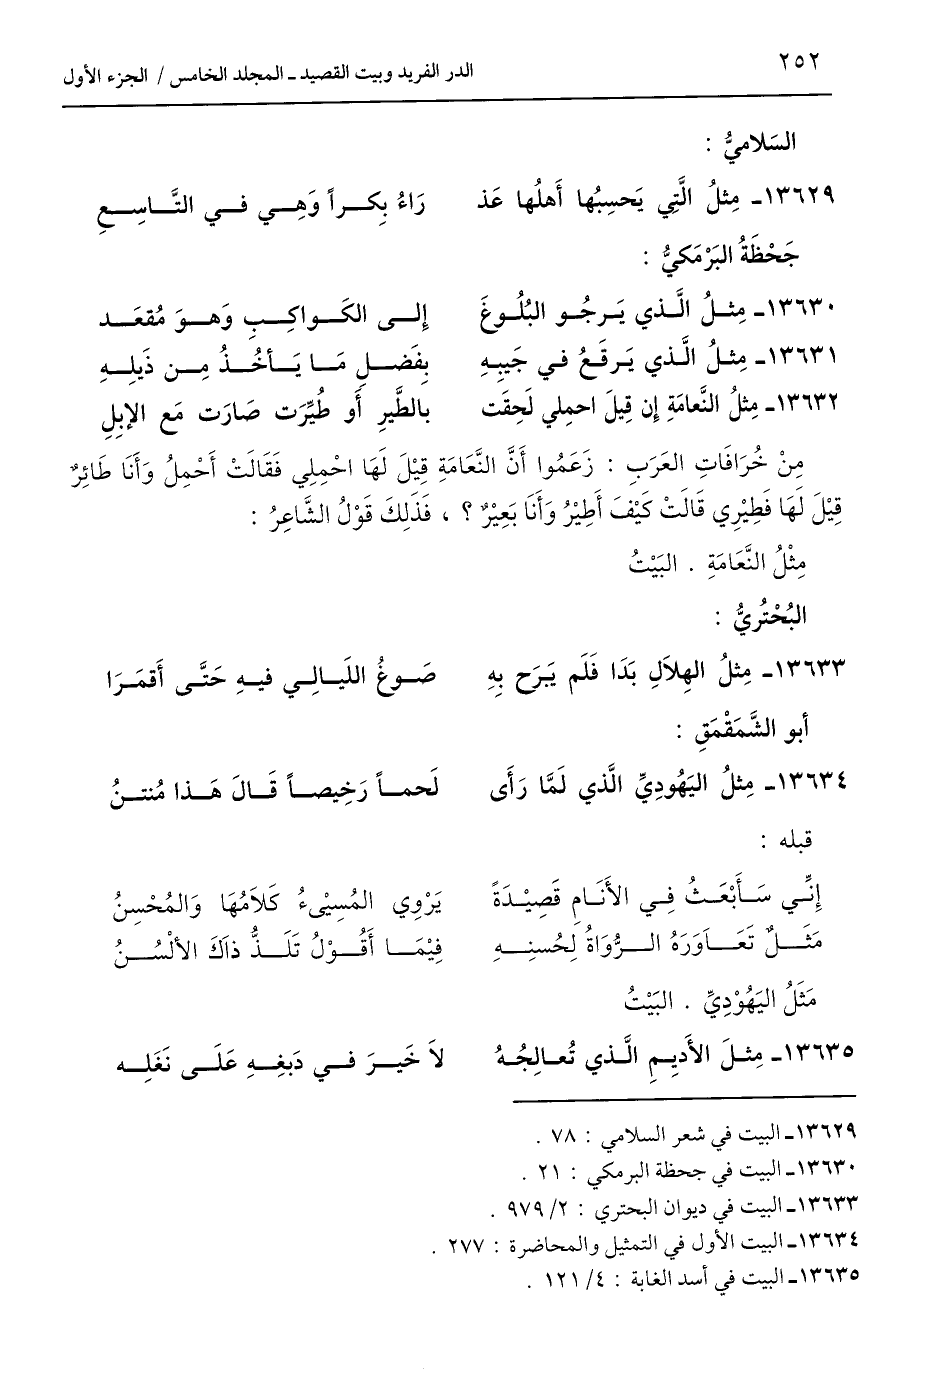 ٢٥٢
الدر الفريد وبيت القصيد ـ المجلد الخامس / الجزء الأول
السَلاميُّ :
١٣٦٢٩ـ مِثلُ الَّتِي يَحسِبُها أَهلُها عَذ رَاءُ بِكراً وَهِي في التَّاسِعِ
جَحْظَةُ البَرْمَكيُّ :
١٣٦٣٠ـ مِثلُ الَّذي يَرجُو البُلُوغَ إلى الكَواكِبِ وَهوَ مُقعَد
١٣٦٣١ـ مِثلُ الَّذي يَرقَعُ في جَيبِهِ بِفَضلِ مَا يَأخُذُ مِن ذَيلِهِ
١٣٦٣٢ـ مِثلُ النَّعامَةِ إن قِيلَ احمِلي لَحِقَت بالطَّيرِ أَو طُيِّرَت صَارَت مَع الإبِلِ
مِنْ خُرَافَاتِ العَرَبِ : زَعَمُوا أَنَّ النَّعَامَةِ قِيْلَ لَهَا احْمِلِي فَقَالَتْ أَحْمِلُ وَأَنَا طَائِرٌ
قِيْلَ لَهَا فَطِيْرِي قَالَتْ كَيْفَ أَطِيْرُ وَأَنَا بَعِيْرٌ ؟ ، فَذَلِكَ قَوْلُ الشَّاعِرُ :
مِثْلُ النَّعَامَةِ . البَيْتُ
البُحْتُرِيُّ :
١٣٦٣٣ـ مِثلُ الهِلاَلِ بَدَا فَلَم يَبرَح بِهِ صَوغُ اللَيالِي فيهِ حَتَّى أَقمَرَا
أبو الشَّمَقْمَقِ :
١٣٦٣٤ـ مِثلُ اليَهُودِيِّ الَّذي لَمَّا رَأَى لَحماً رَخِيصاً قَالَ هَذا مُنتنُ
قبله :
إِنِّي سَأَبْعَثُ فِي الأَنَامِ قَصِيْدَةً يَرْوِي المُسِيْىءُ كَلاَمُهَا وَالمُحْسِنُ
مَثَلٌ تَعَاوَرَهُ الرُّوَاةُ لِحُسنِهِ فِيْمَا أَقُوْلُ تَلَذُّ ذاكَ الأَلْسُنُ
مَثَلُ اليَهُوْدِيِّ . البَيْتُ
١٣٦٣٥ـ مِثلَ الأَدِيمِ الَّذي تُعالِجُهُ لاَ خَيرَ في دَبغِهِ عَلَى نَغَلِه
١٣٦٢٩ـ البيت في شعر السلامي : ٧٨ .
١٣٦٣٠ـ البيت في جحظة البرمكي : ٢١ .
١٣٦٣٣ـ البيت في ديوان البحتري : ٢/ ٩٧٩ .
١٣٦٣٤ـ البيت الأول في التمثيل والمحاضرة : ٢٧٧ .
١٣٦٣٥ـ البيت في أسد الغابة : ٤/ ١٢١ .